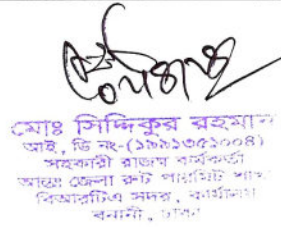 মোঃ সিদ্দিকুর রহমান
আই, ডি নং-(১৯৯১৩৫১০০৪)
সহকারী রাজস্ব কর্মকর্তা
আন্তঃ জেলা রুট পারমিট শাখা
বিআরটিএ সদর, কার্যালয়
বনানী, ঢাকা